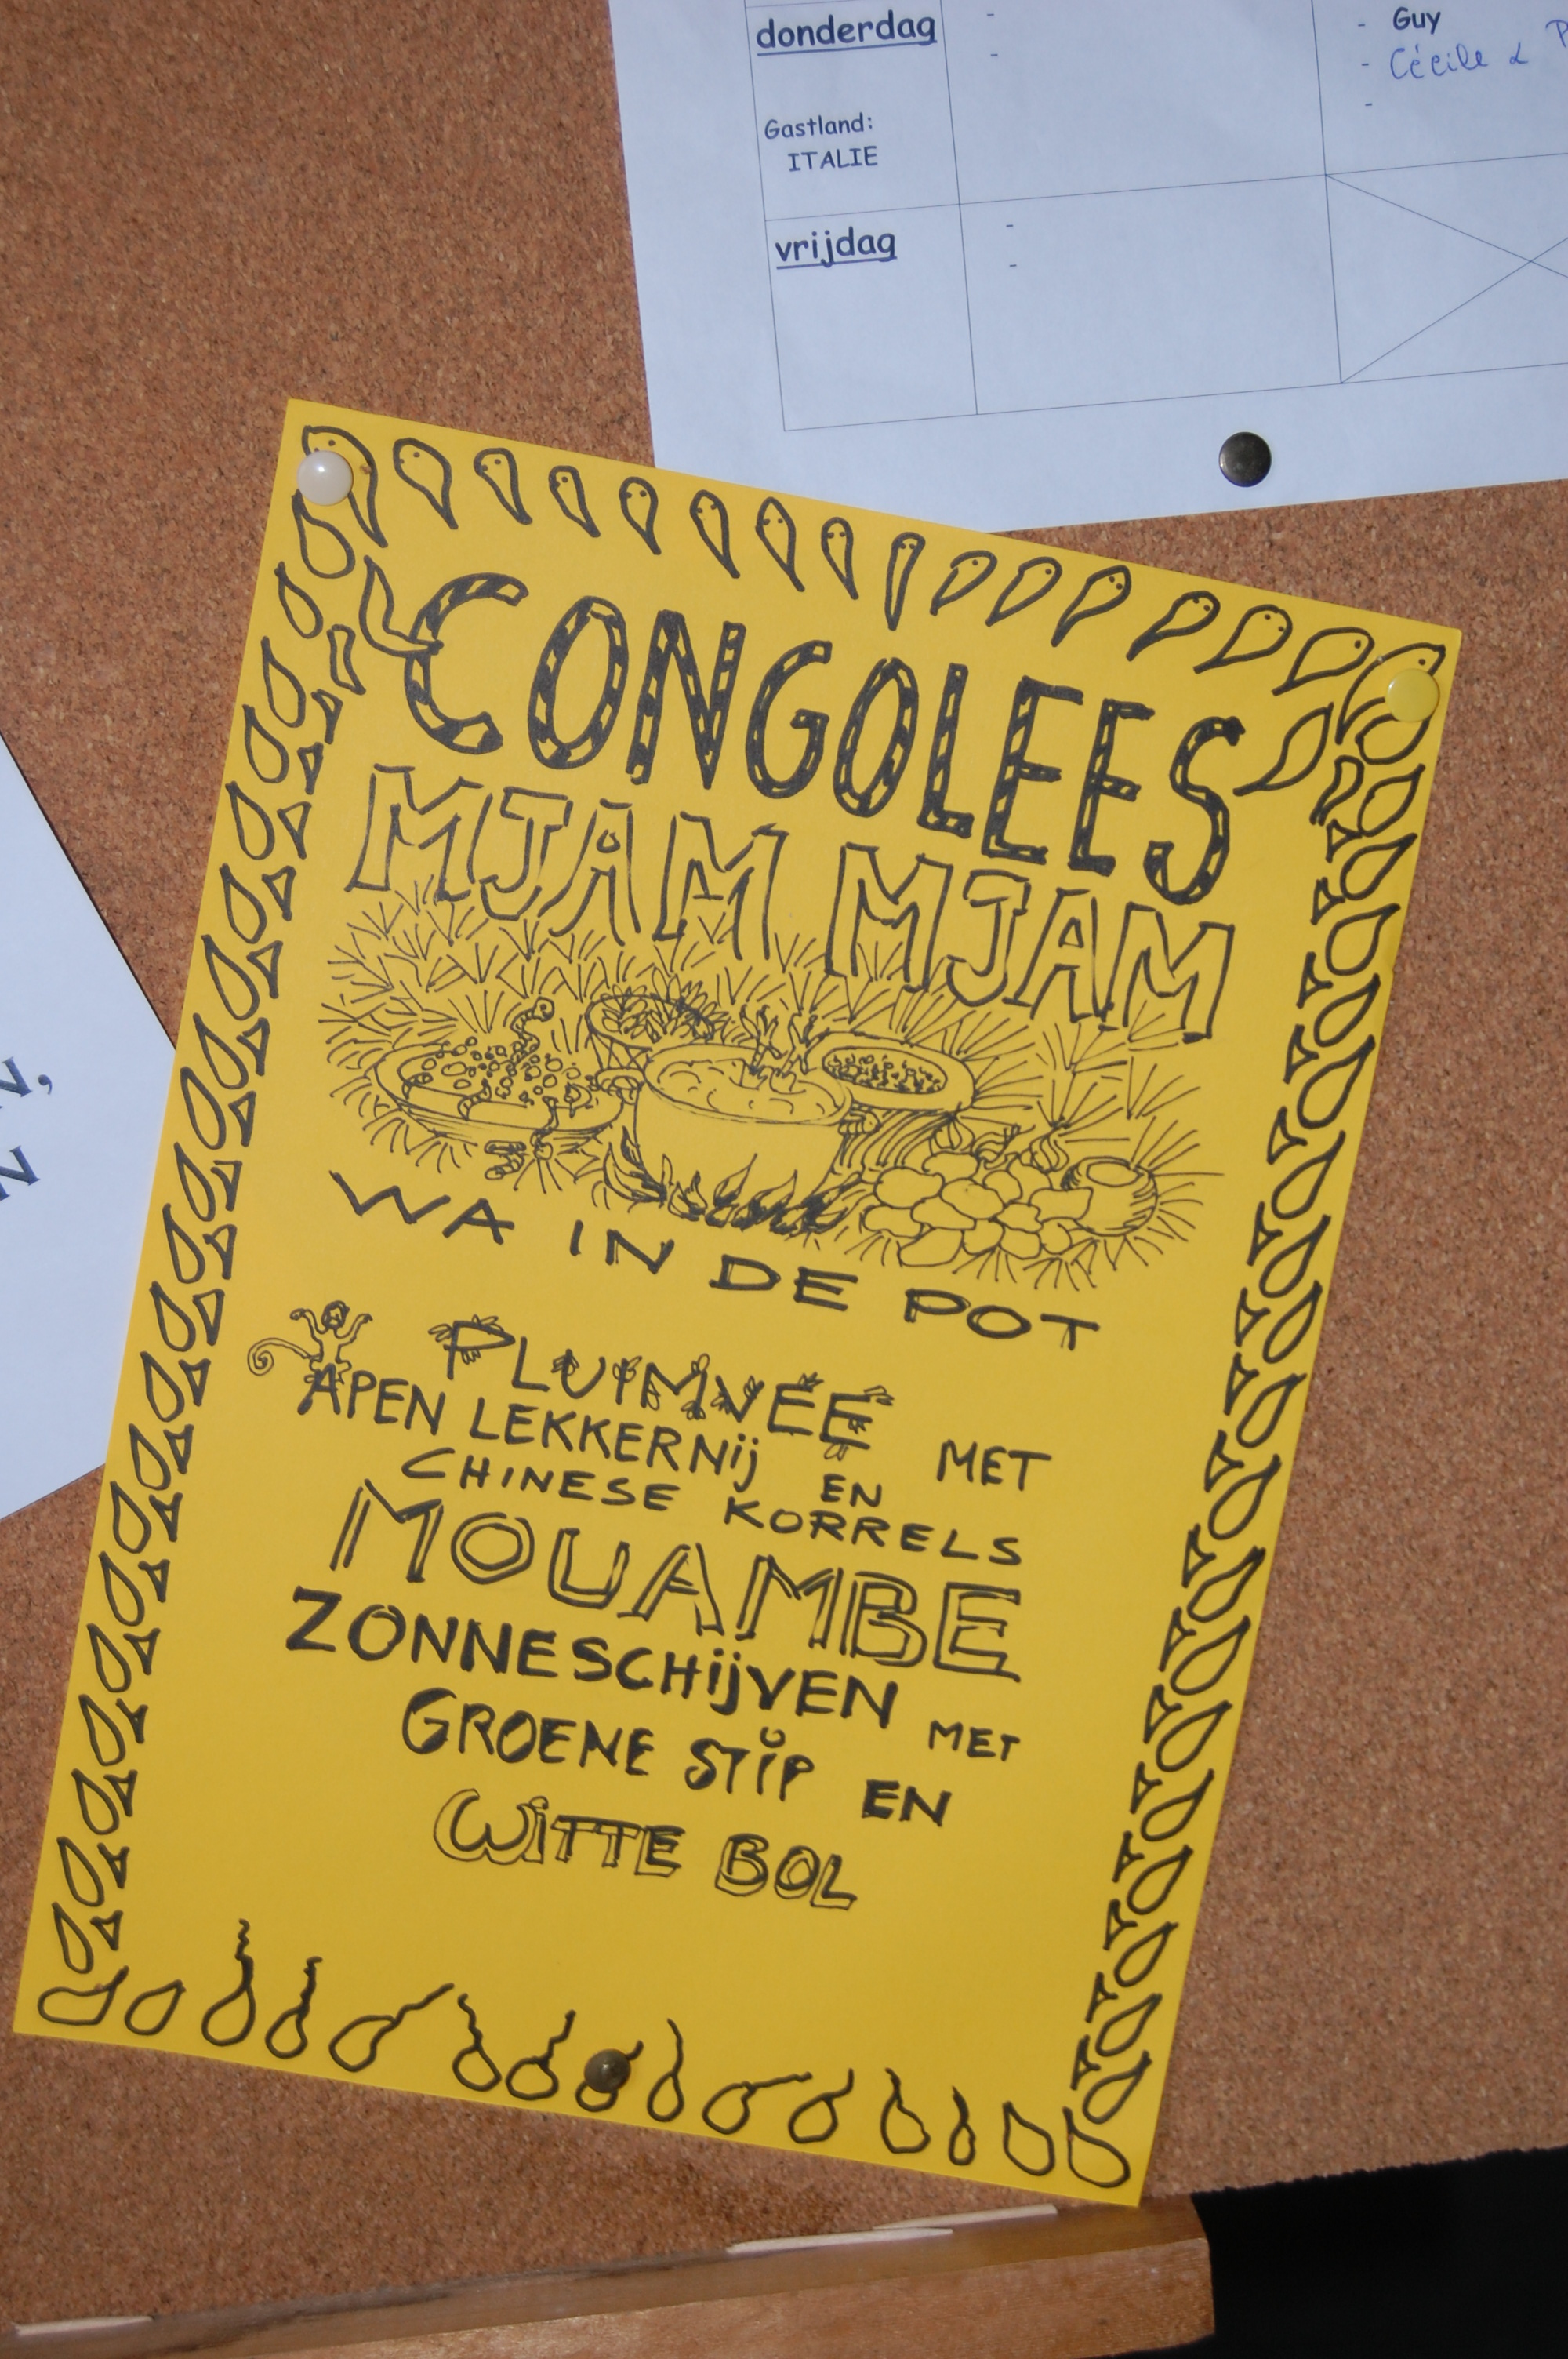 donderdag
Gastland:
ITALIE
- Guy
- Cécile &
vrijdag
CONGOLEES
MJAM MJAM
WA IN DE POT
PLUIMVEE MET
APEN LEKKERNij EN
CHINESE KORRELS
MOUAMBE
ZONNESCHijVEN MET
GROENE STIP EN
WiTTE BOL